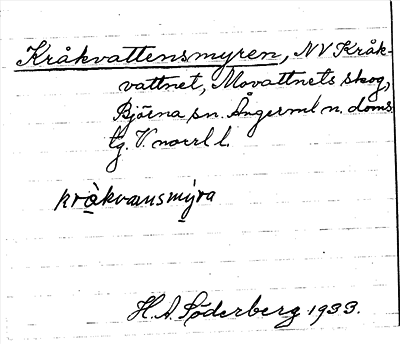 Kråkvattensmyren, NV Kråk-
vattnet, Movattnets skog,
Björna sn. Ångerml n. doms.
tg. V. norrl l.
kråkvansmýra
H. A. Söderberg 1933.